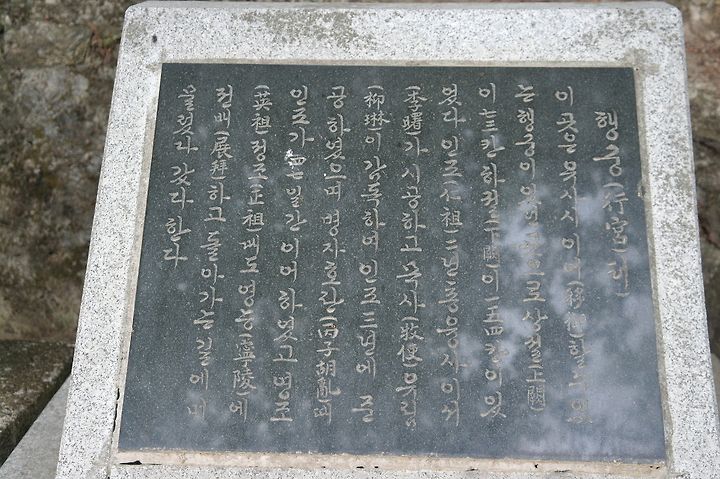 행궁(行宮)터
이곳은 유사시 이어(移御)할 수 있
는 행궁이 있던 곳으로 상궐(上闕)
이 칸 하궐(下闕)이 一五四칸이 있
었다 인조(仁祖) 년 총융사 이서
(李曙)가 시공하고 목사(牧使) 유림
(柳琳)이 감독하여 인조 三년에 준
공하였으며 병자호란(丙子胡亂)때
인조가 일간 이어하였고 영조
(英祖) 정조(正祖)때도 영능(寧陵)에
전배(展拜)하고 돌아가는 길에 머
물렀다 갔다 한다